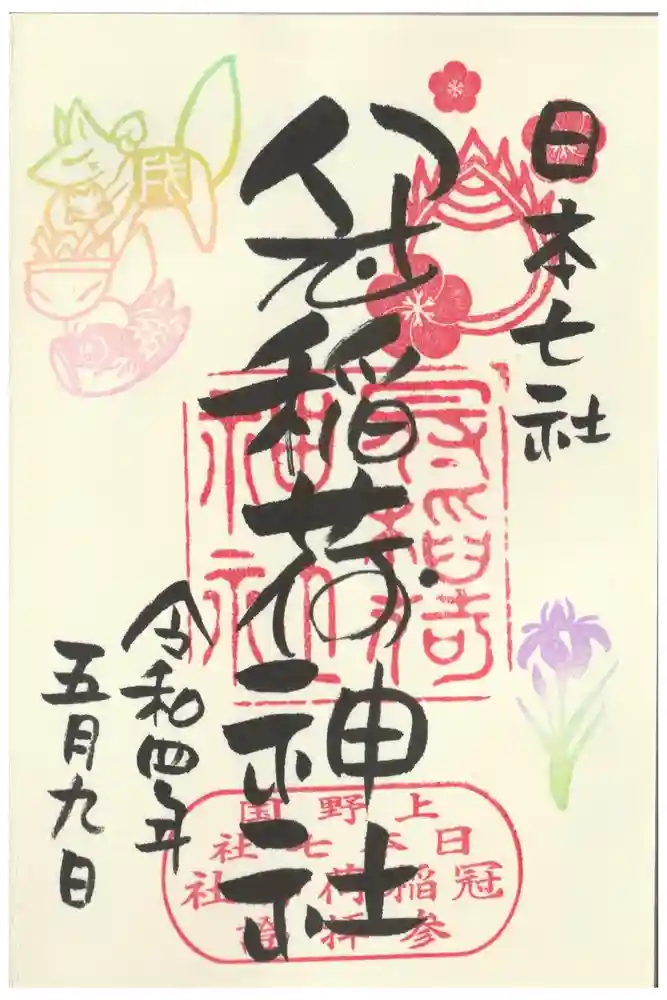 日本七社
冠稲荷神社
令和四年
五月九日
戌
上野国
日本七社
冠稲荷神社
参拝證